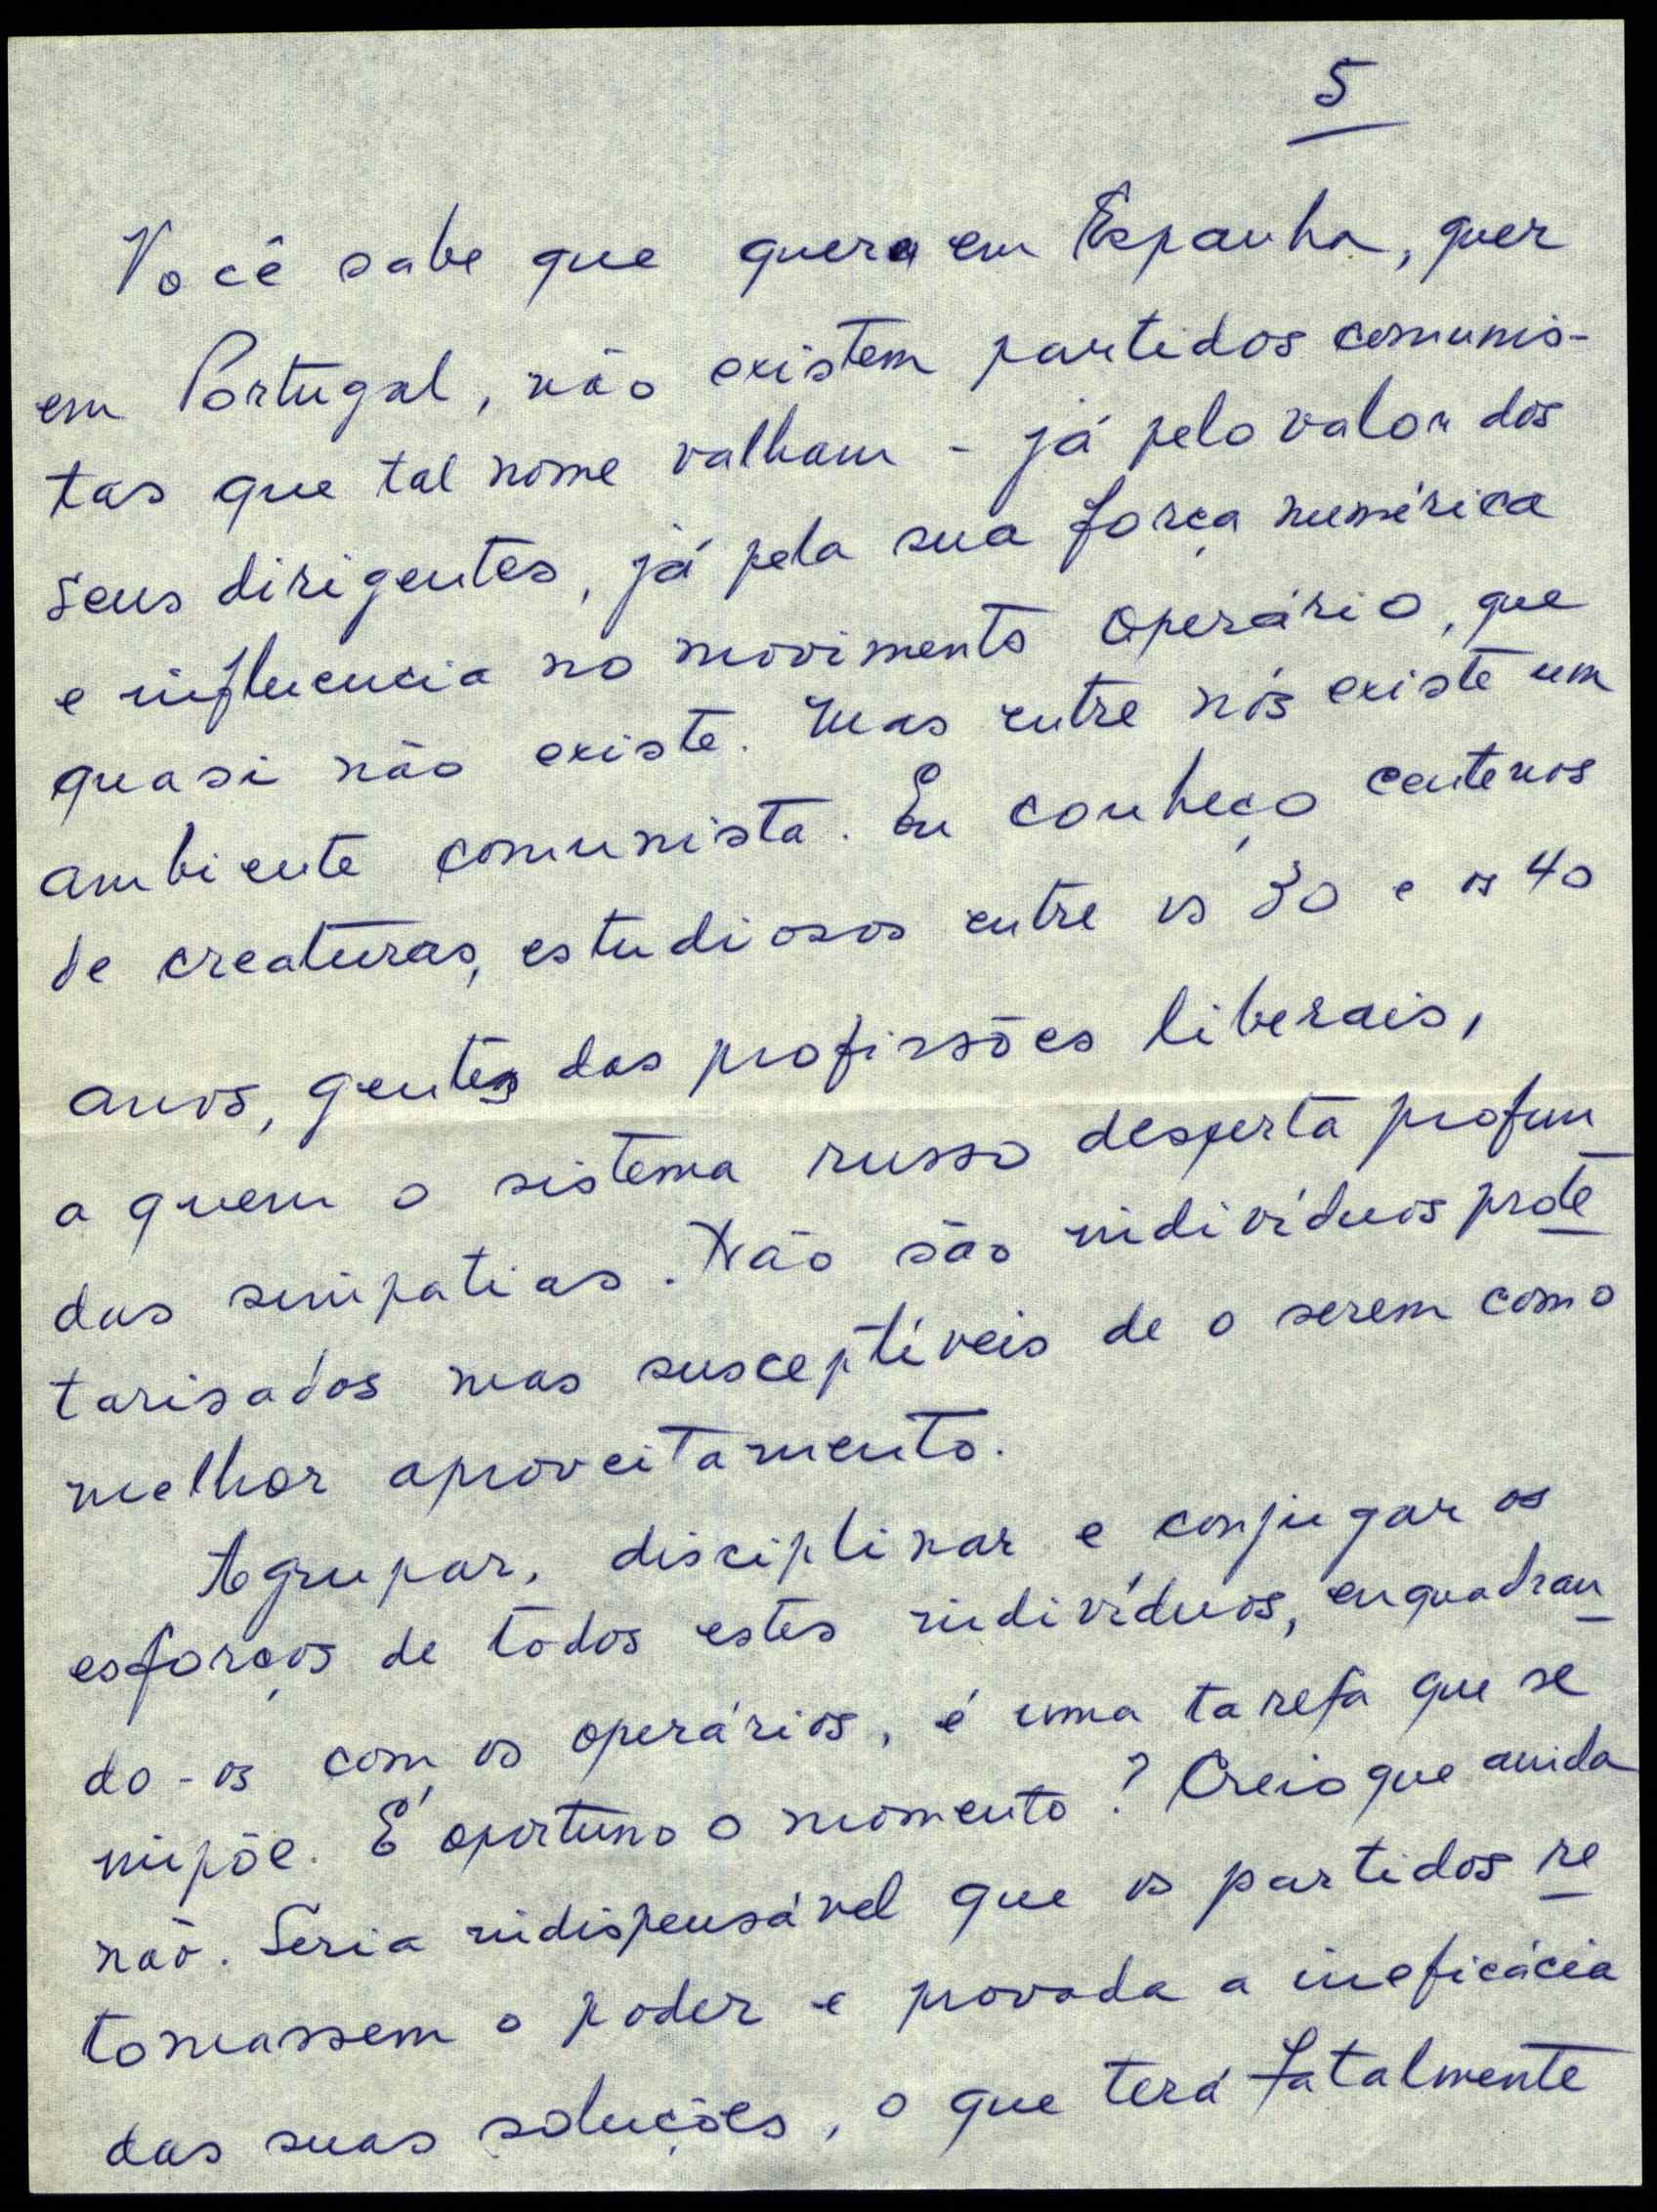 5
Você sabe que quer em Espanha, quer
em Portugal, não existem partidos comunis-
tas que tal nome valham - já pelo valor dos
seus dirigentes, já pela sua força numérica
e influencia no movimento operário, que
quasi não existe. Mas entre nós existe um
ambiente comunista. Eu conheço centenas
de creaturas, estudiosos entre os 30 e os 40
anos, gentes das profissões liberais,
a quem o sistema russo desperta profun
das simpatias. Não são indivíduos prole
tarisados mas susceptíveis de o serem como
melhor aproveitamento.
Agrupar, disciplinar e conjugar os
esforços de todos estes indivíduos, enquadran
do-os com os operários, é uma tarefa que se
impõe. É oportuno o momento? Creio que ainda
não. Seria indispensável que os partidos re
tomassem o poder e provada a ineficácia
das suas soluções, o que terá fatalmente